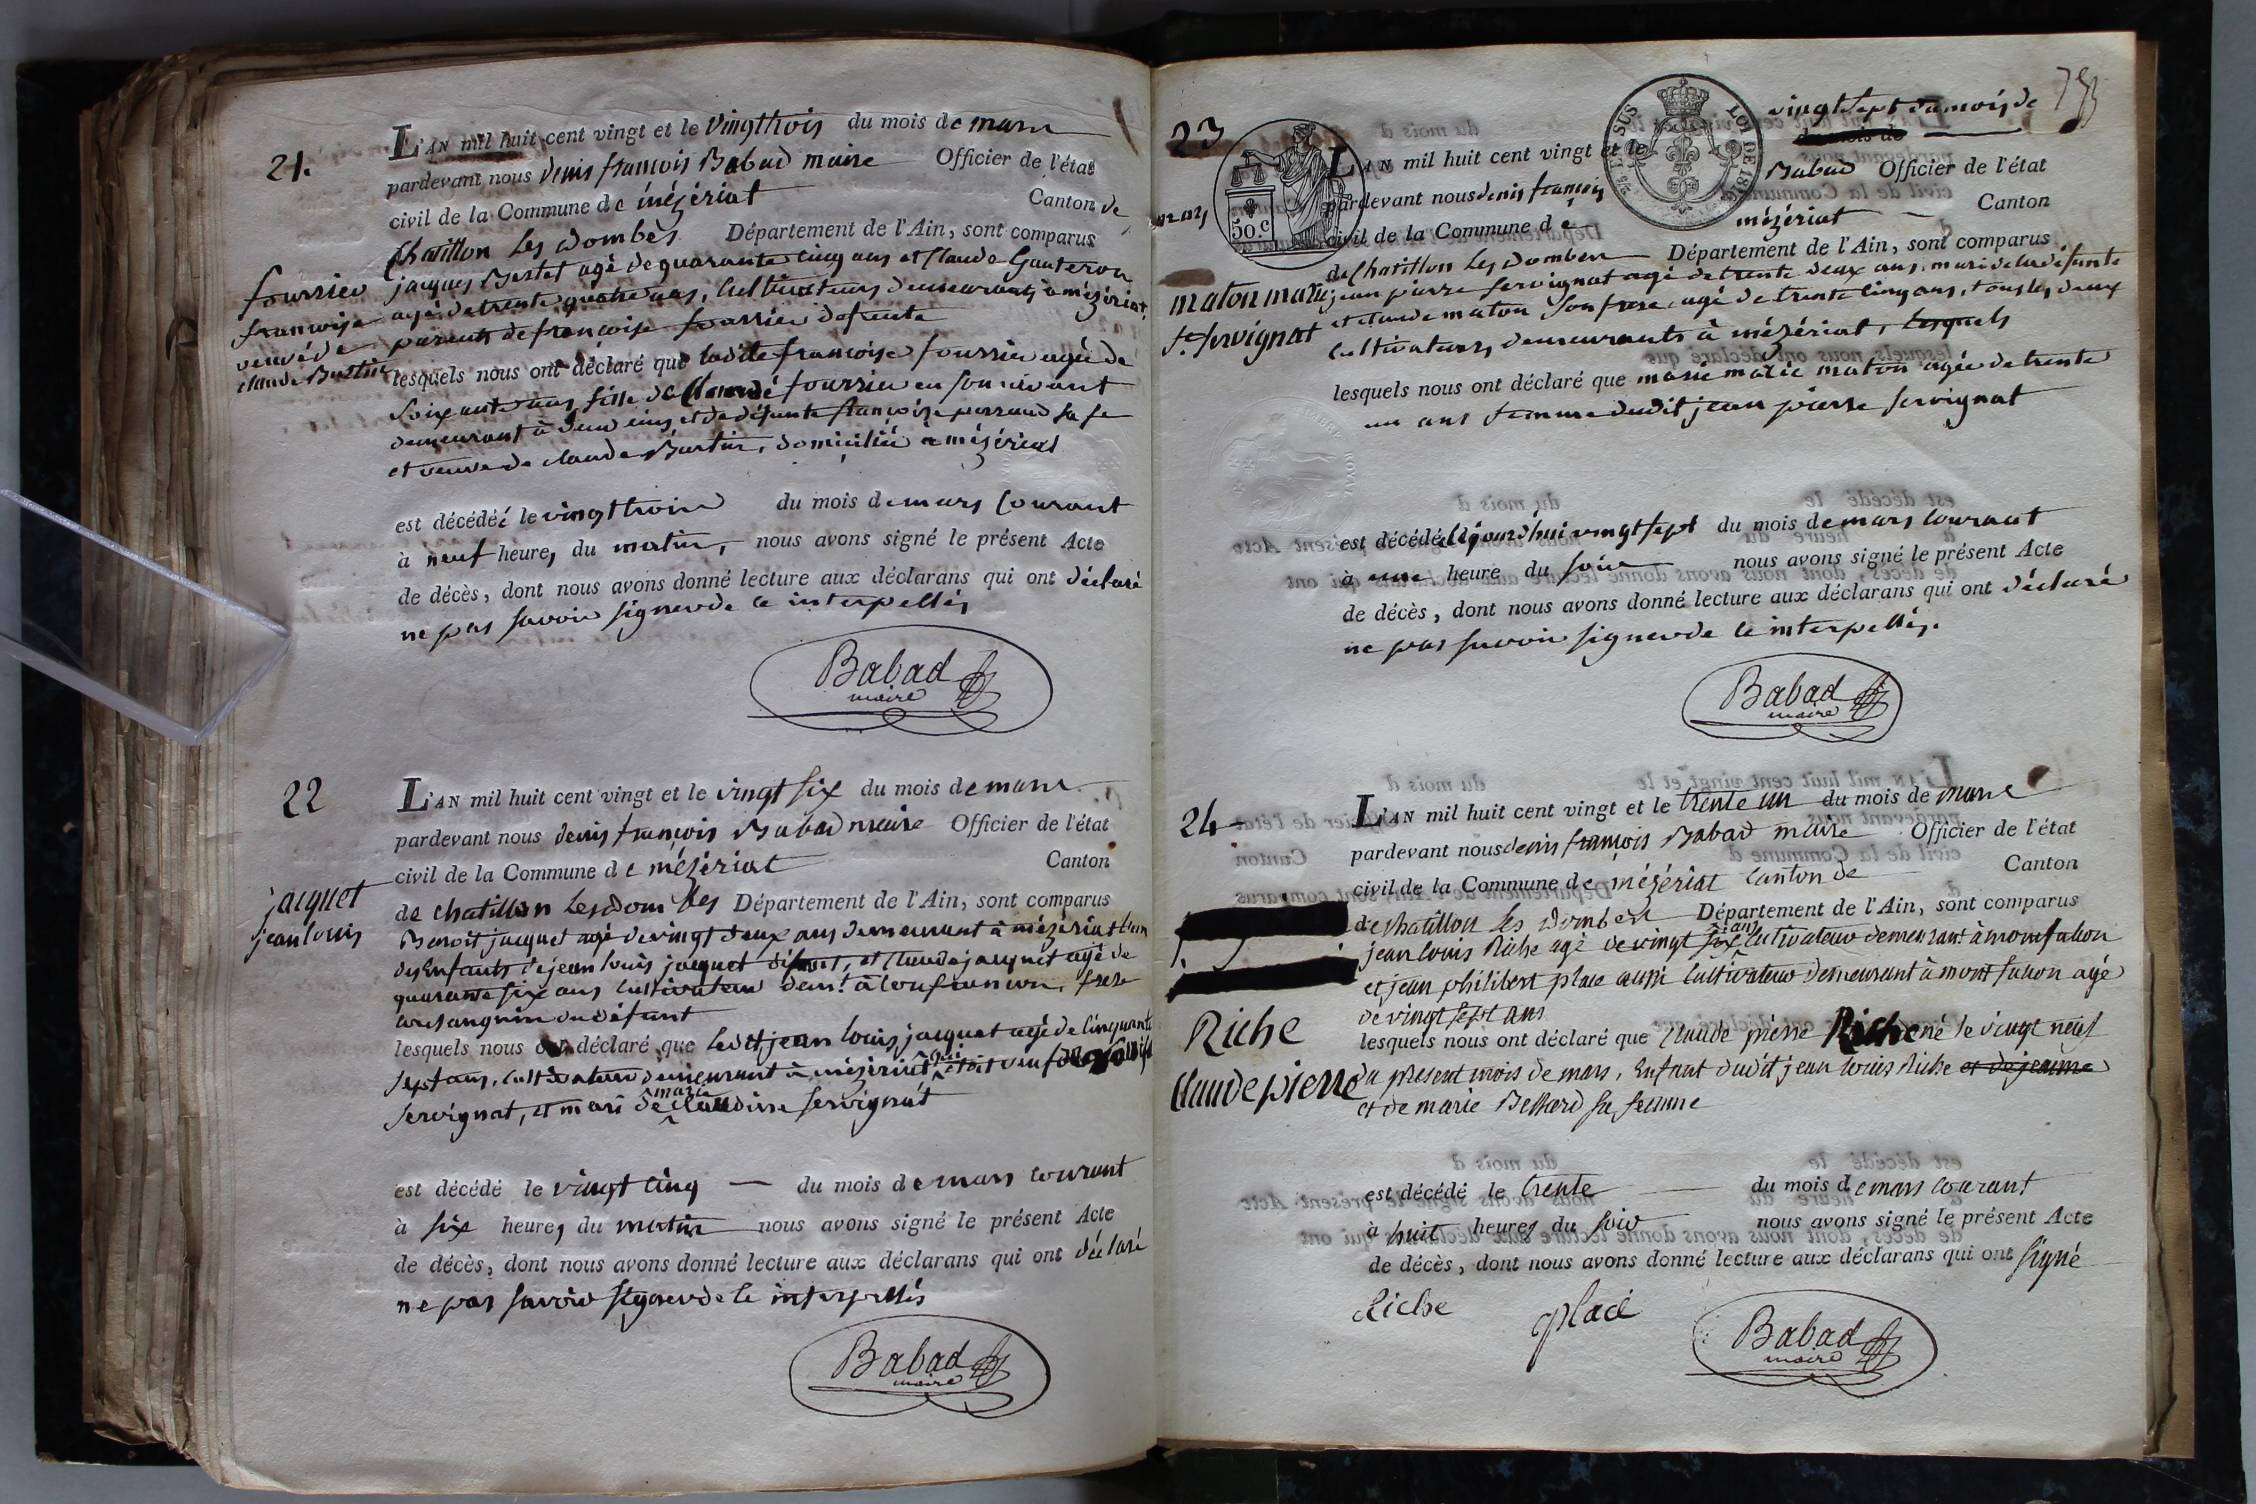 21.
fourrier
françoise
veuve de
claude Burtin
L'AN mil huit cent vingt et le vingt trois du mois de mars
pardevant nous denis françois Babad maire Officier de l'état
civil de la Commune de mézériat Canton de
Chatillon les dombes Département de l'Ain, sont comparus
jacques Bestet agé de quarante cinq ans et Claude Gauteron
agé de trente quatre ans, Cultivateurs demeurants à mézériat,
parents de françoise fourrier defunte
lesquels nous ont déclaré que ladite françoise fourrier agée de
soixante ans fille de Claude fourrier en son vivant
demeurant à et de défunte françoise perraud sa fe
et veuve de claude Burtin, domiciliée à mézériat
est décédée le vingt trois du mois de mars Courant
à neuf heures du matin, nous avons signé le présent Acte
de décès, dont nous avons donné lecture aux déclarans qui ont déclaré
ne pas savoir signer de ce interpellés
Babad
maire
22
jacquet
jean louis
L'AN mil huit cent vingt et le vingt six du mois de mars
pardevant nous denis françois Babad maire Officier de l'état
civil de la Commune de mézériat Canton
de chatillon les dombes Département de l'Ain, sont comparus
Benoit jacquet agé de vingt deux ans demeurant à mézériat l'un
des Enfants de jean louis jacquet défunt, et Claude jacquet agé de
quarante six ans Cultivateur demt. à Confrançon, frere
consanguin du défunt
lesquels nous ont déclaré que ledit jean louis jacquet agé de cinquante
sept ans, cultivateur demeurant à mézériat qui était veuf de
servignat, et mari de marie Claudine servignat
est décédé le vingt cinq du mois de mars courant
à six heures du matin nous avons signé le présent Acte
de décès, dont nous avons donné lecture aux déclarans qui ont déclaré
ne pas savoir signer de ce interpellés
Babad
maire
23
maton marie
fe. servignat
50 c
LOI DE 1816
vingt sept du mois de
L'AN mil huit cent vingt et le
mars
pardevant nous denis françois Babad Officier de l'état
civil de la Commune de mézériat Canton
de Chatillon les dombes Département de l'Ain, sont comparus
jean pierre servignat agé de trente deux ans, mari de la défunte
et claude maton son frere, agé de trente cinq ans, tous les deux
cultivateurs demeurants à mézériat, lesquels
lesquels nous ont déclaré que marie maton agée de trente
un ans femme dudit jean pierre servignat
est décédée aujourd'hui vingt sept du mois de mars courant
à une heure du soir nous avons signé le présent Acte
de décès, dont nous avons donné lecture aux déclarans qui ont déclaré
ne pas savoir signer de ce interpellés.
Babad
maire
24
Riche
Claude pierre
L'AN mil huit cent vingt et le trente un du mois de mars
pardevant nous denis françois Babad maire Officier de l'état
civil de la Commune de mézériat Canton de Canton
de chatillon les dombes Département de l'Ain, sont comparus
jean louis Riche agé de vingt six ans Cultivateur demeurant à montfalcon
et jean philibert place aussi Cultivateur demeurant à montfalcon agé
de vingt sept ans
lesquels nous ont déclaré que Claude pierre Riche né le vingt neuf
du present mois de mars, Enfant dudit jean louis Riche et de jeanne
et de marie Bellard sa femme
est décédé le trente du mois de mars courant
à huit heures du soir nous avons signé le présent Acte
de décès, dont nous avons donné lecture aux déclarans qui ont signé
Riche place
Babad
maire